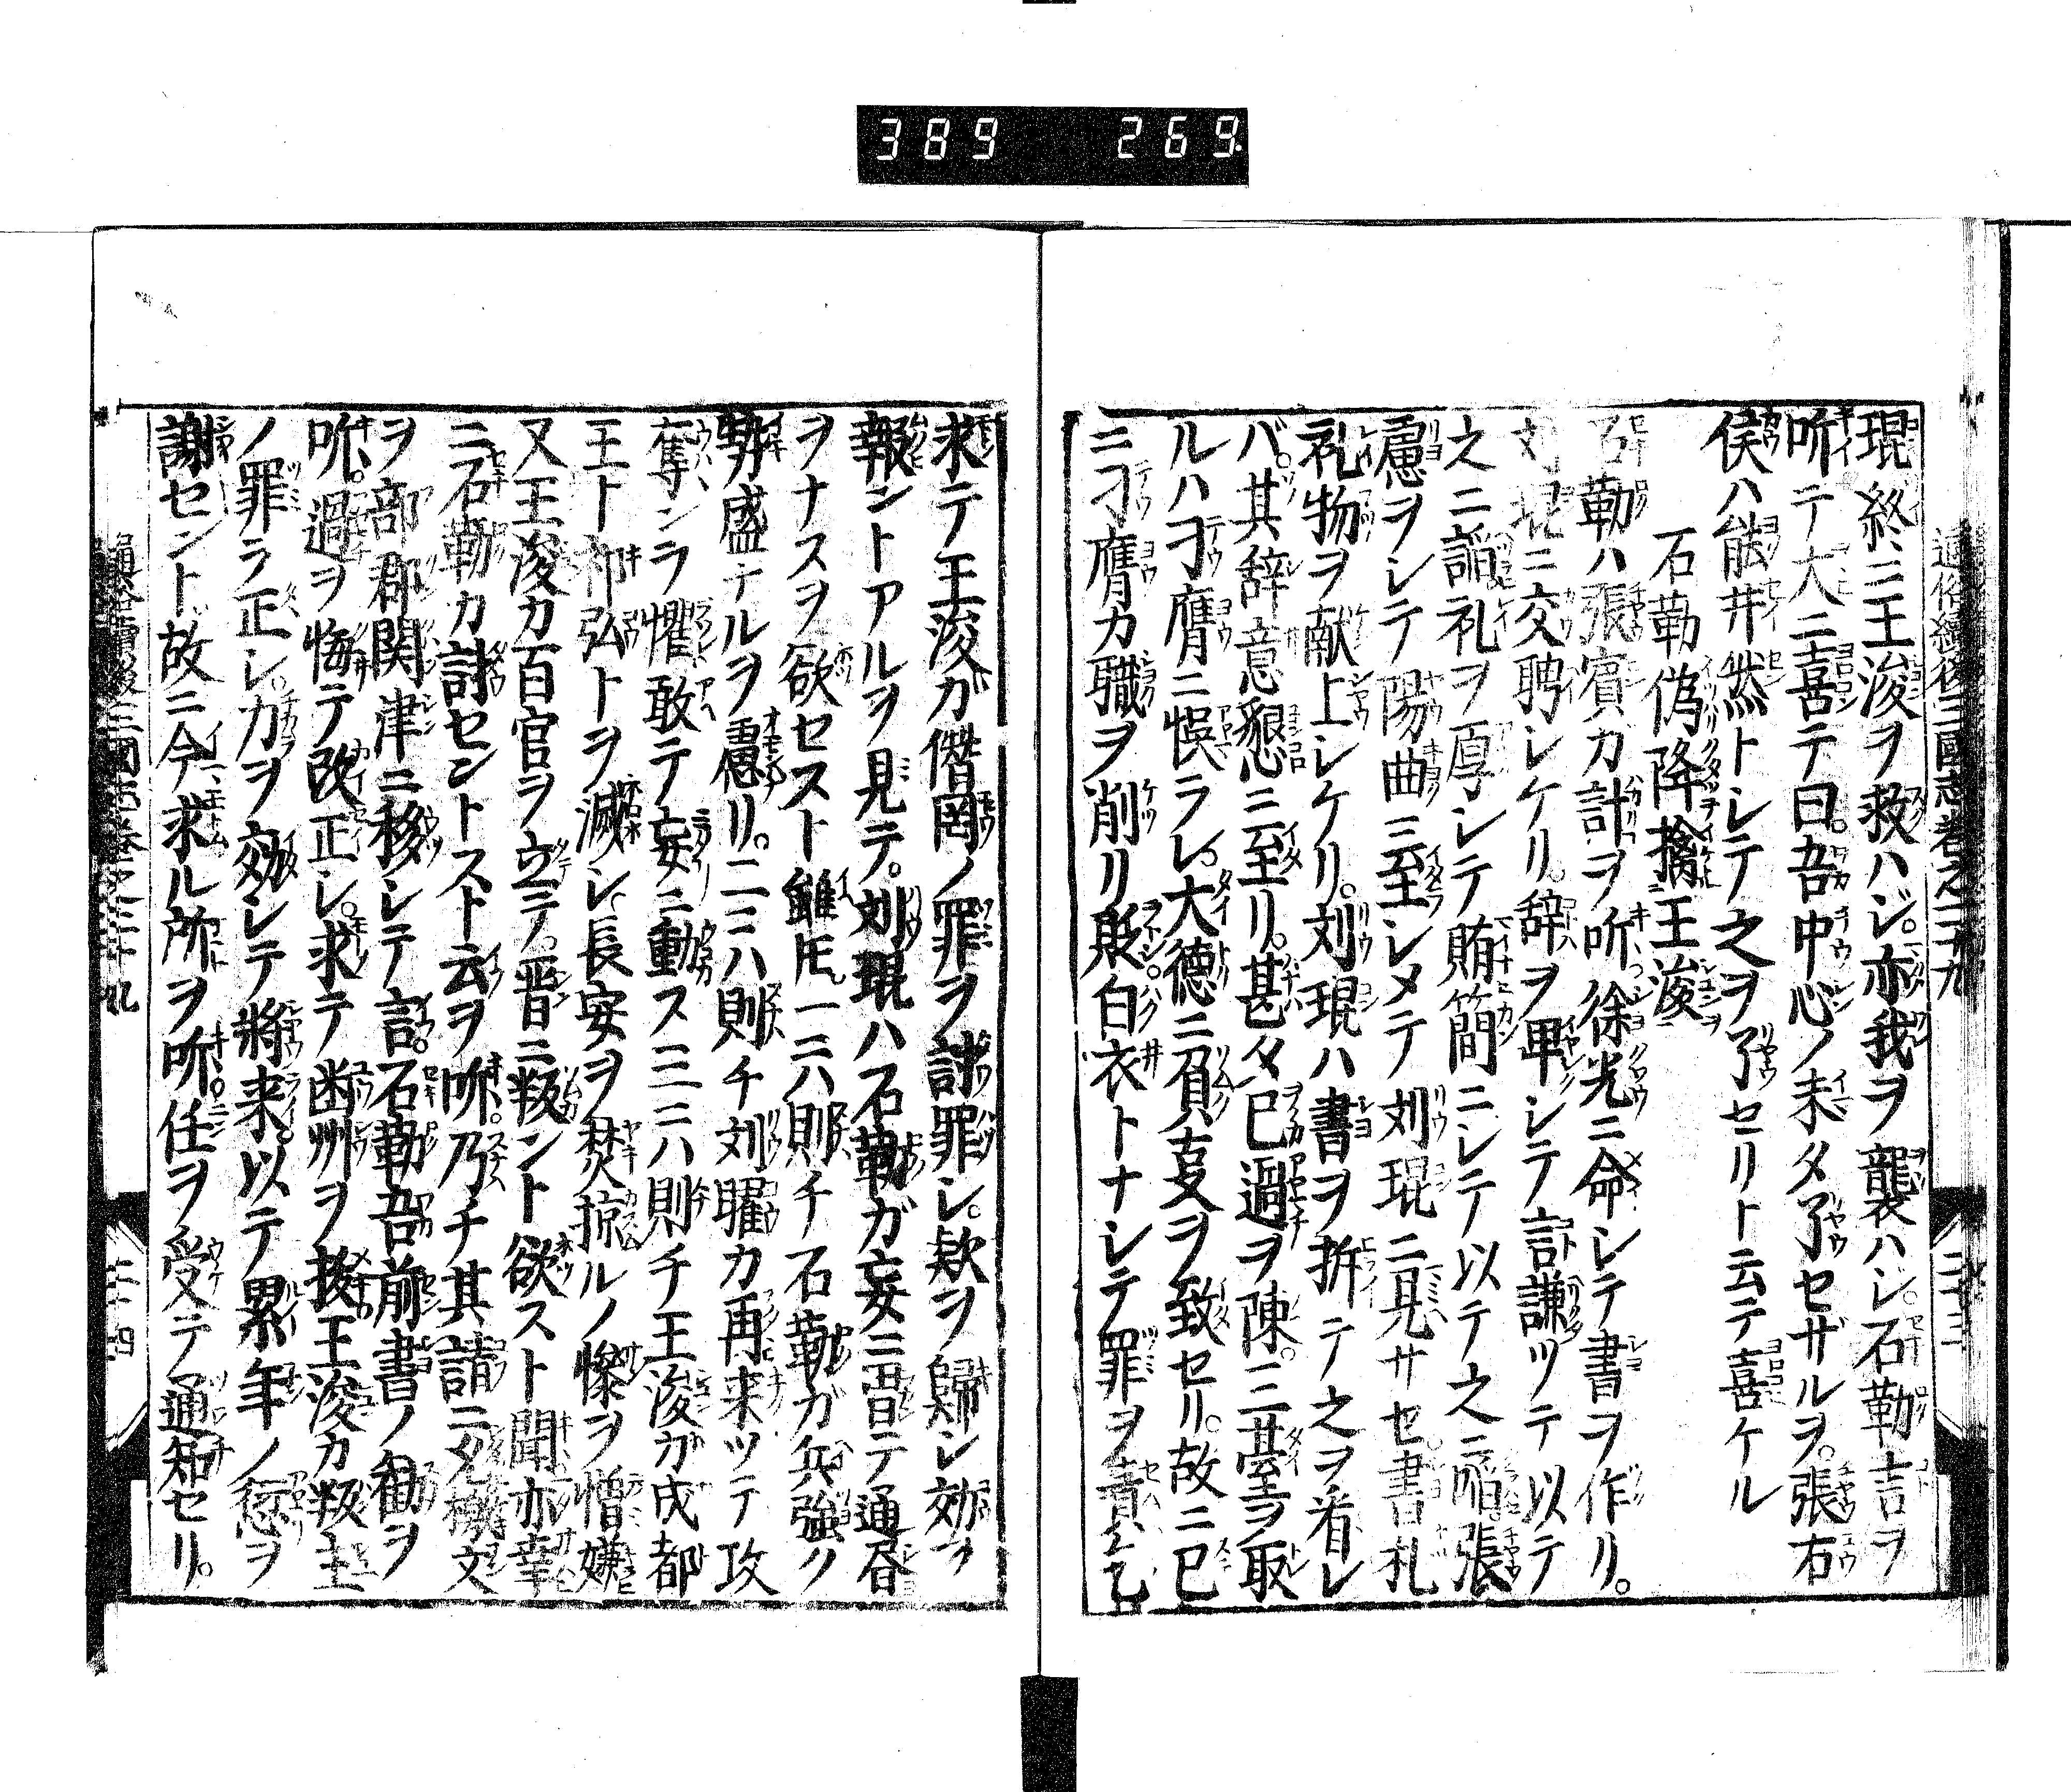 389 269
通俗續後三國志巻之二十九 二十三
琨終ニ王浚ヲ救ハジ。亦我ヲ襲ハレ。石勒吉ヲ
听テ大ニ喜テ曰。吾中心ノ未タ了セザルヲ。張右
侯ハ能井然トレテ之ヲ了セリト云テ喜ケル
石勒偽降擒王浚
石勒ハ張賓カ計ヲ听徐光ニ命レテ書ヲ作リ。
刘琨ニ交聘レケリ。辞ヲ卑レテ言謙ツテ以テ
之ニ諂礼ヲ厚レテ賄簡ニレテ以テ之ニ
慮ヲレテ陽曲ニ至レメテ刘琨ニ見サセ書札
礼物ヲ献上レケリ。刘琨ハ書ヲ拆テ之ヲ看レ
バ。其辞意懇ニ至リ。甚タ已過ヲ陳。三基ヲ取
ルハ刁膺ニ悞ラレ。大德ニ負夌ヲ致セリ。故ニ已
ニ刁膺カ職ヲ削リ貶白衣トナレテ罪ヲ責
求テ王浚ガ僭罔ノ罪ヲ討罪レ。欵ヲ歸レ効ヲ
報ントアルヲ見テ。刘琨ハ石勒ガ妄ニ晋テ通昏
ヲナスヲ欲セスト雖𪜈一ニハ則チ石勒ガ兵強ク
勢盛ナルヲ慮リ。二ニハ則チ刘曜カ再来ツテ攻
奪ンヲ懼敢テ妄ニ動ス三ニハ則チ王浚カ成都
王ト祁弘トヲ滅レ長安ヲ焚掠ルノ慘ヲ憎嫌
又王浚カ百官ヲ立テ。晋ニ叛ント欲スト聞亦幸
ニ石勒カ討セントスト云ヲ听。乃チ其請ニ 檄文
ヲ部郡関津ニ移レテ言。石勒吾前書ノ勧ヲ
听。過ヲ悔テ改正レ。求テ幽州ヲ抜王浚カ叛主
ノ罪ヲ正レ。力ヲ効レテ將来。以テ累年ノ愆ヲ
謝セント。故ニ今求ル所ヲ听。任ヲ受テ通知セリ。
通俗續後三國志巻之二十九 二十四